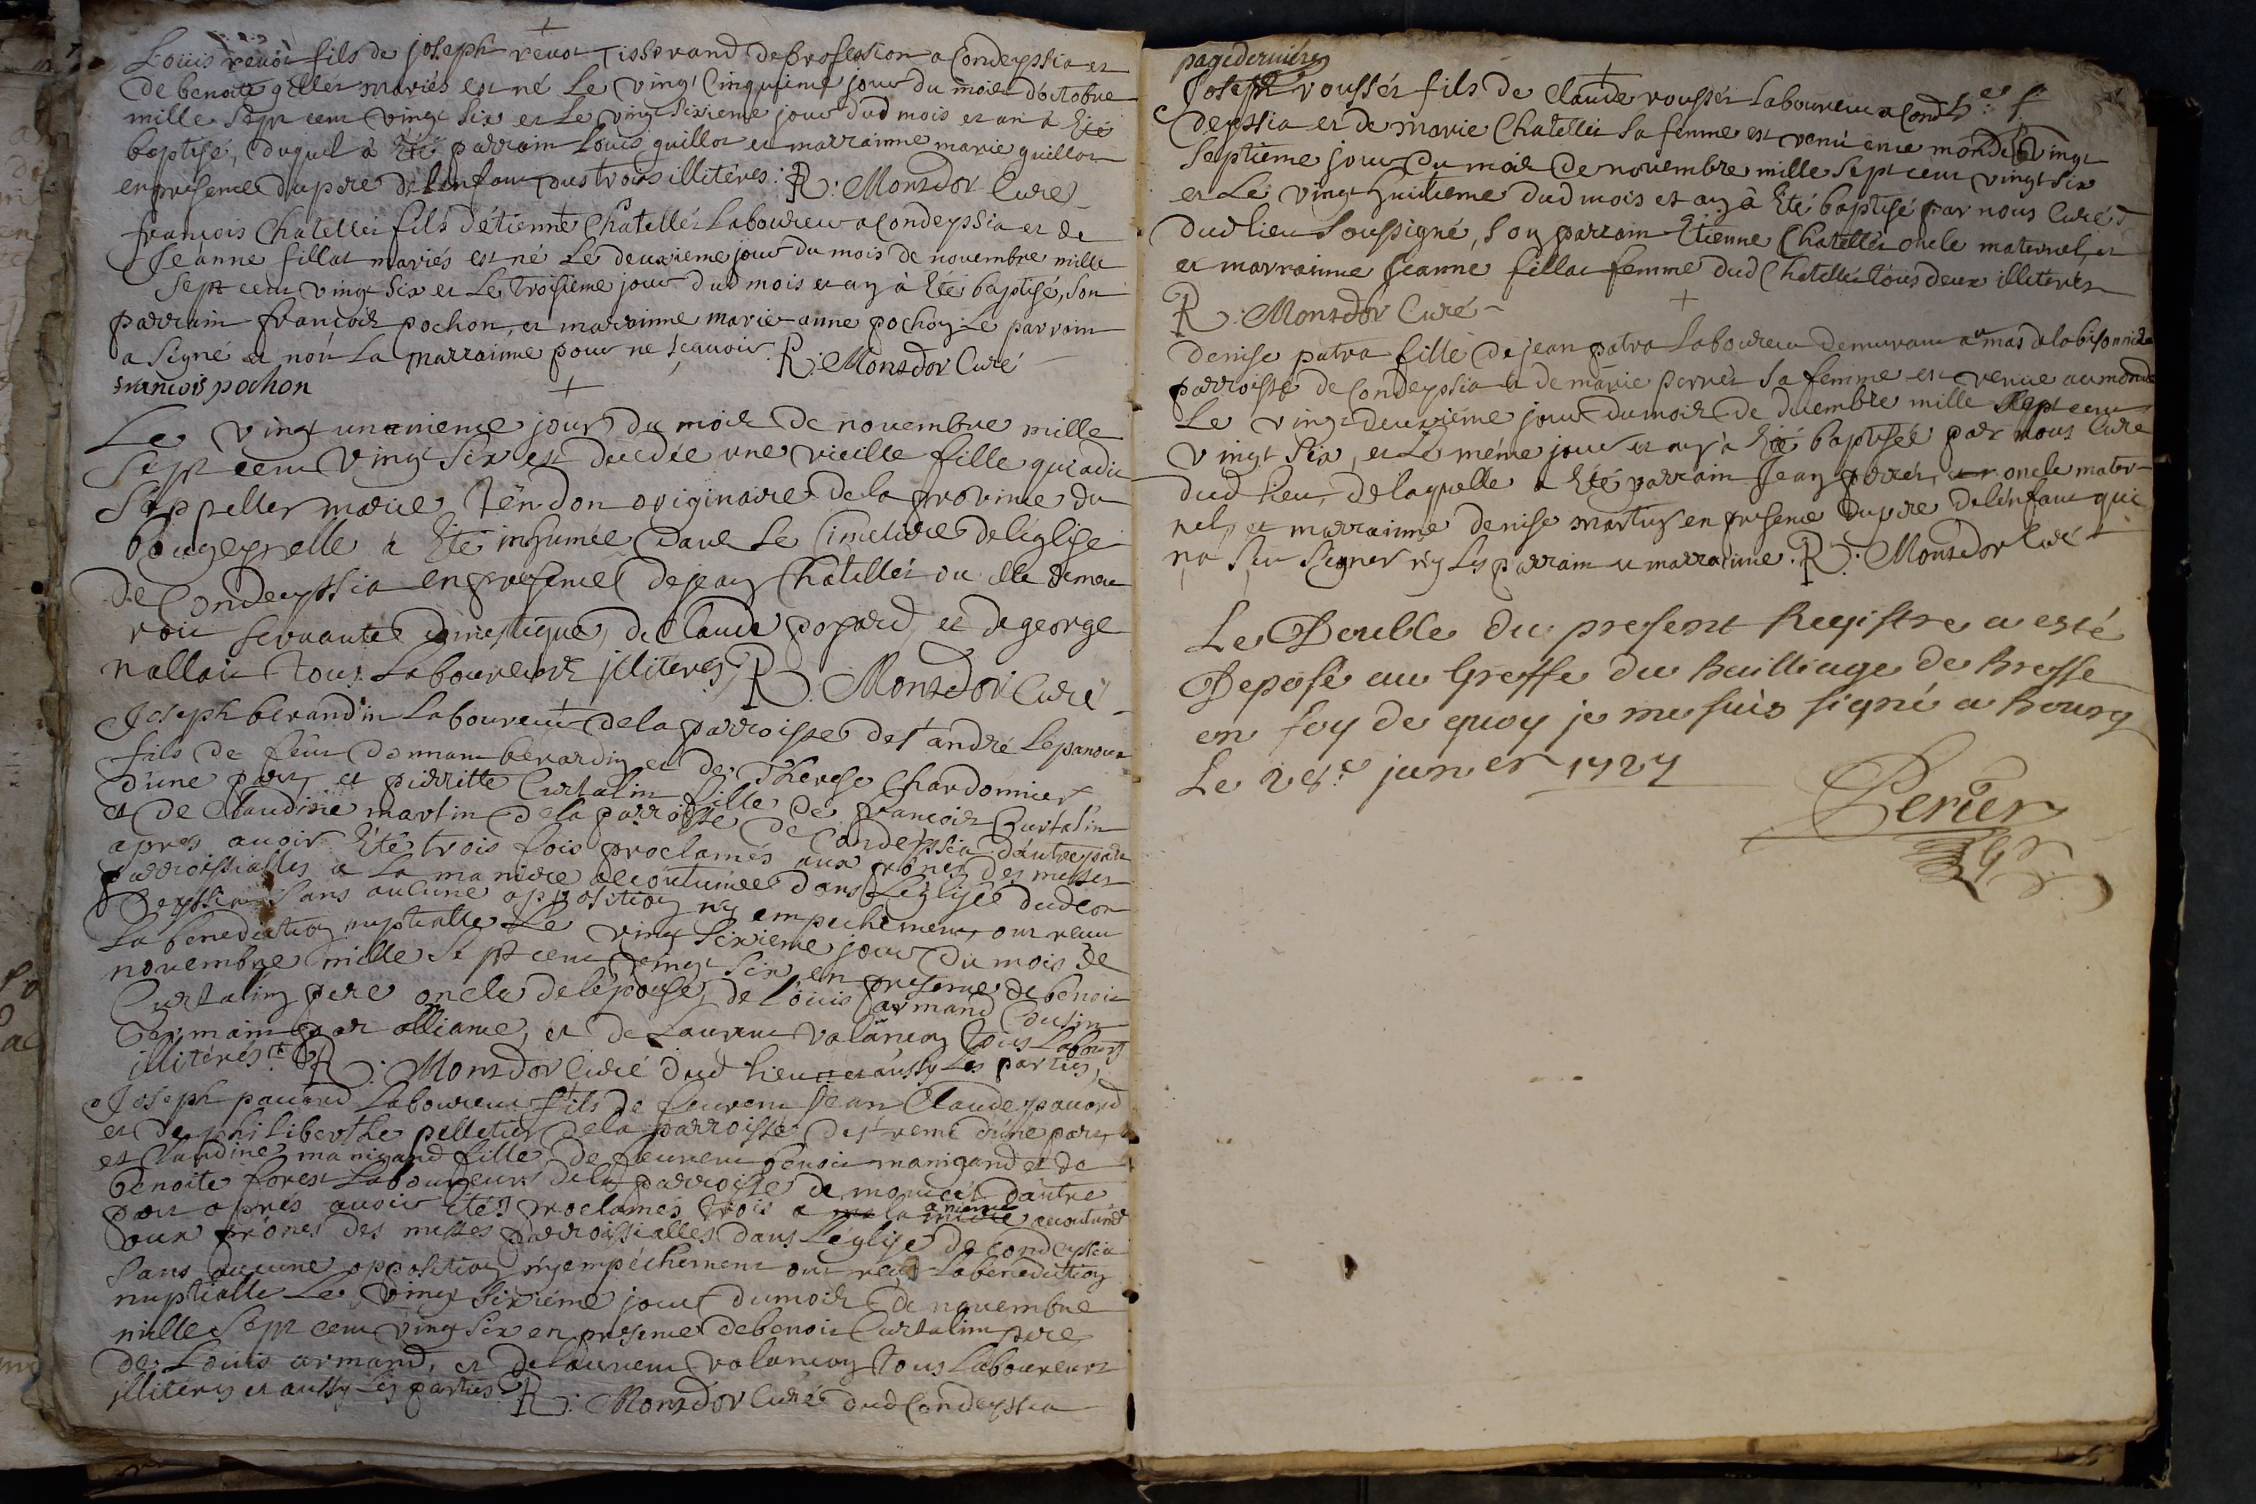 Loüis revoi fils de joseph revoi Tisserand deprofession a Condeyssia et
de benoite giller mariés est né Le vingt Cinquieme jour du mois d'octobre
mille Sept cent vingt Six et Le vingt Sixieme jour dud mois et an à Eté
baptisé, duquel à Eté parrain Louis guillot et marrainne marie guillot
en presence du pere de lenfant tous trois illitéres. R: Monsdor Curé
françois Chatellér fils d'étienne Chatellér Laboureur a Condeyssia et de
Jeanne fillat mariés est né Le deuxieme jour du mois de novembre mille
Sept cent vingt Six et Le troisieme jour dud mois et an à Eté baptisé, Son
parrain françois pochon, et marrainne marie anne pochon, Le parrain
a Signé et non La marrainne pour ne Sçavoir. R: Monsdor Curé
françois pochon
Le vingt unanieme jour du mois de novembre mille
Sept cent vingt Six est decedée une vieille fille qui a dit
Sappeller marie tëndon originaire de la province du
bougey elle a Eté inhumée dans Le Cimetiere de léglise
de Condeyssia en presence de jean Chatellér ou elle demeu
roit servante domestique, de Claude popard et de george
nallait tous Laboureurs jlliteres, R: Monsdor Curé
Joseph berandin Laboureur de la parroisse de st andré Lepanoux
fils de feu donnam berardin et de Therese Chardonnier
d'une part, et pierritte Curtalin fille de françois Curtalin
et de Claudine martin de la parroisse de Condeyssia d'autre part
apres avoir Eté trois fois proclamés aux prônes des messes
parroissialles a La maniere accoutumée dans L'église dud Con
deyssia Sans aucune opposition ny empechement, ont receu
La benediction nuptialle Le vingt Sixieme jour du mois de
novembre mille Sept cent vingt Six, en presence de benoit
Curtalin pere oncle de lépouse, de Loüis armand Cousin
Germain par alliance, et de Laurent valançon tous Labours
illitéres R: Monsdor Curé dud lieu et aussy Les parties,
Joseph pavard Laboureur fils de feu Jean Claude pavard
et de philiberthe pelletier de la parroisse de st remi d'une part,
et Claudine manigand fille de feu benoit manigand et de
benoite forest Laboureurs de la parroisse de moncet d'autre
part apres avoir Etés proclamés trois a la maniere accoutumé
aux prônes des messes parroissialles dans L'eglise de Condeyssia
Sans aucune opposition ny empéchement ont receu La benediction
nuptialle Le vingt Sixiéme jour du mois de novembre
mille Sept cent vingt Six en presence de benoit Curtalin pere,
de Loüis armand, et de Laurent valançon tous Laboureurs
jlliterés et aussy Les parties. R: Monsdor Curé dud Condeyssia
page derniére
Joseph rousser fils de Claude rousser Laboureur a Con
deyssia et de marie Chatellér Sa femme est venu au monde Le vingt
Septieme jour du mois de novembre mille Sept cent vingt Six
et Le vingt huitieme dud mois et an à Eté baptisé par nous Curé
dud lieu Soussigné, Son parrain Etienne Chatellér oncle maternel, et
et marrainne Jeanne fillat femme dud Chatellér tous deux illiterés
R: Monsdor Curé
denise patra fille de jean patra Laboureur demurant au mas de la bisonniere
parroisse de Condeyssia et de marie perrer Sa femme est venue au monde
Le vingt deuxiéme jour du mois de decembre mille Sept cent
vingt Six, et Le même jour et an à Eté baptisée par nous Curé
dud lieu, de laquelle a Eté parrain Jean perrer, oncle mater-
nel, et marrainne denise martin en presence du pere de lénfant qui
na Seu Signer ny Les parrain et marrainne. R: Monsdor Curé
Le Double du present Registre a esté
Deposé au Greffe du Bailliage de Bresse
en foy de quoy je me suis signé a Bourg
Le 28e janvier 1727
Perier